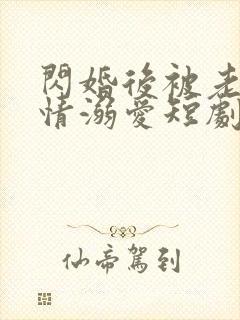 閃婚後被老
情溺愛短劇
仙帝駕到